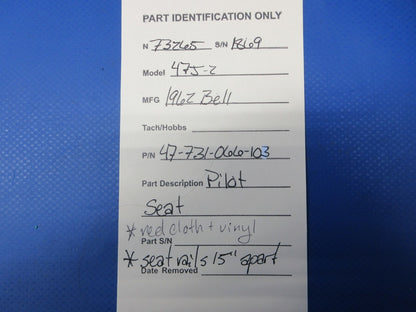 PART IDENTIFICATION ONLY
N 73265 S/N 1869
Model 47J-2
MFG 1962 Bell
Tach/Hobbs
P/N 47-731-066-103
Part Description Pilot
Seat
* red cloth + vinyl
Part S/N
* seat rails 15" apart
Date Removed